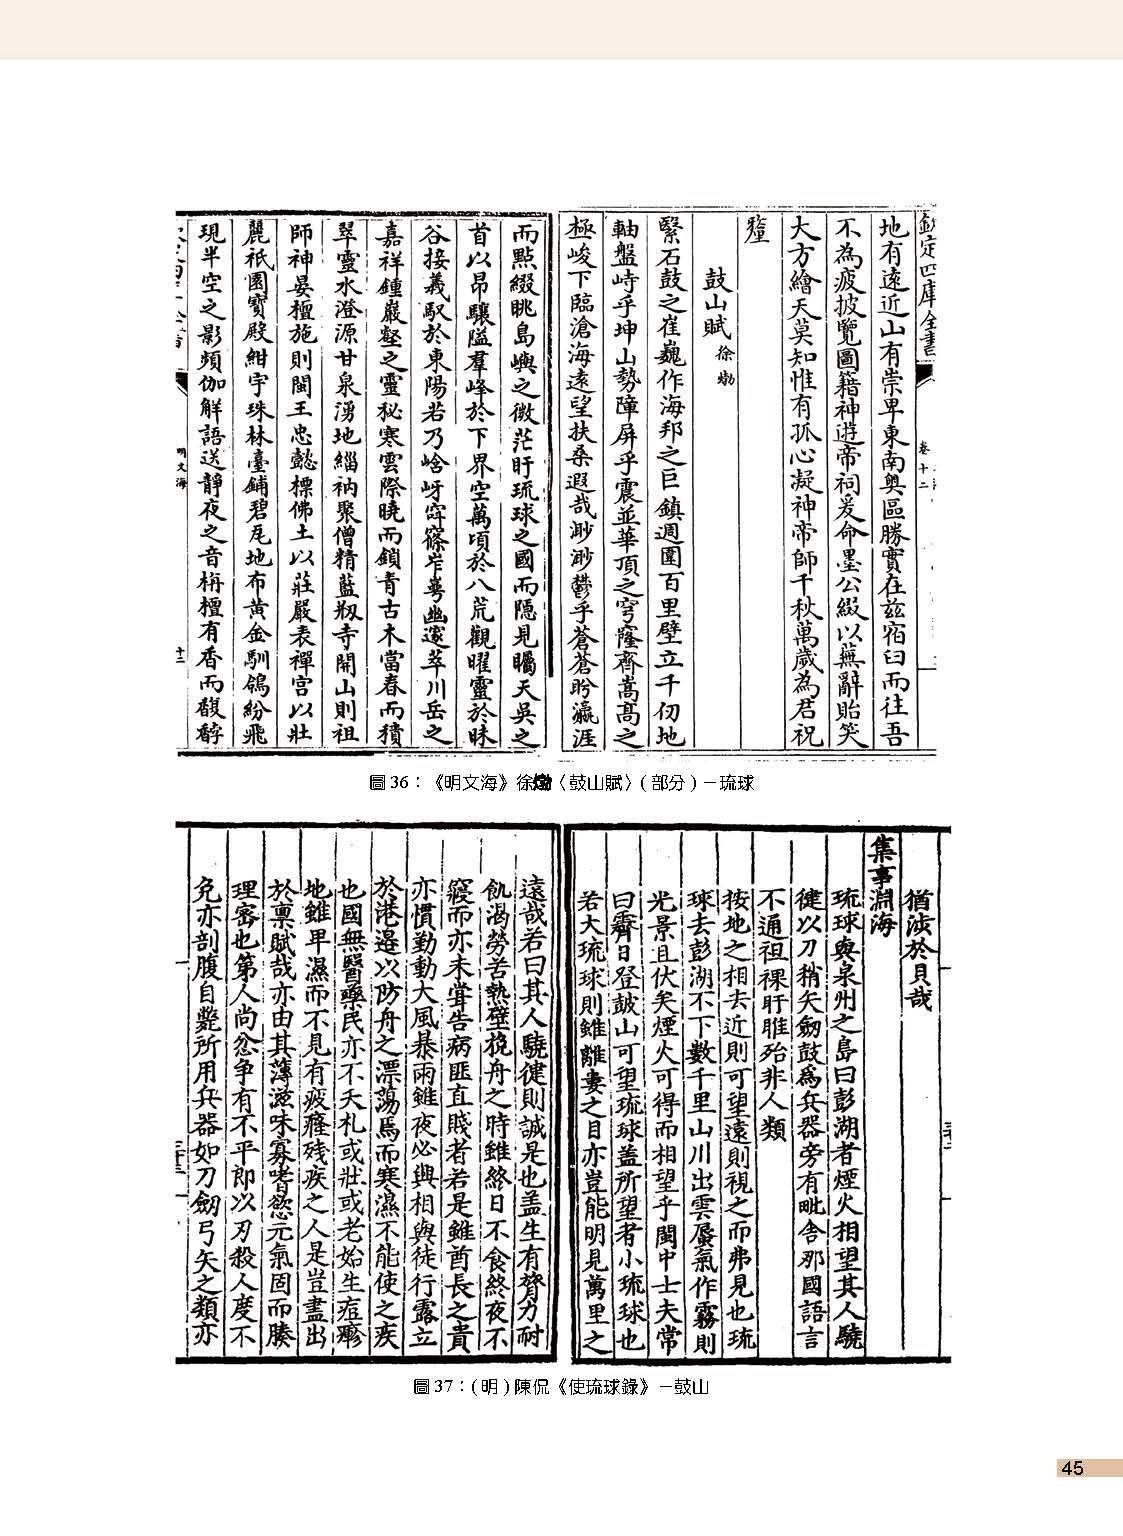 欽定四庫全書
卷十二
地有遠近山有崇卑東南奧區勝實在茲宿臼而往吾
不為疲披覽圖籍神遊帝祠爰命墨公綴以蕪辭貽笑
大方繪天莫知惟有孤心凝神帝師千秋萬歲為君祝
釐
鼓山賦 徐𤊹
繄石鼓之崔巍作海邦之巨鎮週圍百里壁立千仞地
軸盤峙乎坤山勢障屏乎震並華頂之穹窿齊嵩高之
極峻下臨滄海遠望扶桑遐哉渺渺鬱乎蒼蒼盻瀛涯
而點綴眺島嶼之微茫盱琉球之國而隱見矚天吳之
首以昂驤隘羣峰於下界空萬頃於八荒觀曜靈於昧
谷接羲馭於東陽若乃崯岈窅窱岝崿幽邃萃川岳之
嘉祥鍾巖壑之靈秘寒雲際曉而鎖青古木當春而積
翠靈水澄源甘泉湧地緇衲聚僧精藍剏寺開山則祖
師神晏檀施則閩王忠懿標佛土以莊嚴表禪宫以壯
麗祇園寶殿紺宇珠林臺鋪碧瓦地布黄金馴鴿紛飛
現半空之影頻伽解語送靜夜之音栴檀有香而馥馞
明文海
十三
圖 36：《明文海》徐𤊹〈鼓山賦〉( 部分 ) －琉球
猶淡於貝哉
集事淵海
琉球與泉州之島曰彭湖者煙火相望其人驍
徤以刀矟矢劒鼓為兵器旁有毗舍那國語言
不通袒裸盱睢殆非人類
按地之相去近則可望遠則視之而弗見也琉
球去彭湖不下數千里山川出雲蜃氣作霧則
光景且伏矣煙火可得而相望乎閩中士夫常
曰霽日登皷山可望琉球盖所望者小琉球也
若大琉球則雖離婁之目亦豈能明見萬里之
遠哉若曰其人驍徤則誠是也盖生有膂力耐
飢渴勞苦熱壁挽舟之時雖終日不食終夜不
寢而亦未甞告病匪直賤者若是雖酋長之貴
亦慣勤動大風暴雨雖夜必與相與徒行露立
於港邉以防舟之漂蕩焉而寒濕不能使之疾
也國無醫藥民亦不夭札或壯或老始生痘疹
地雖早濕而不見有疲癃殘疾之人是豈盡出
於禀賦哉亦由其薄滋味寡嗜慾元氣固而腠
理密也第人尚忿争有不平即以刃殺人度不
免亦剖腹自斃所用兵器如刀劒弓矢之類亦
圖 37：( 明 ) 陳侃《使琉球錄》－鼓山
45